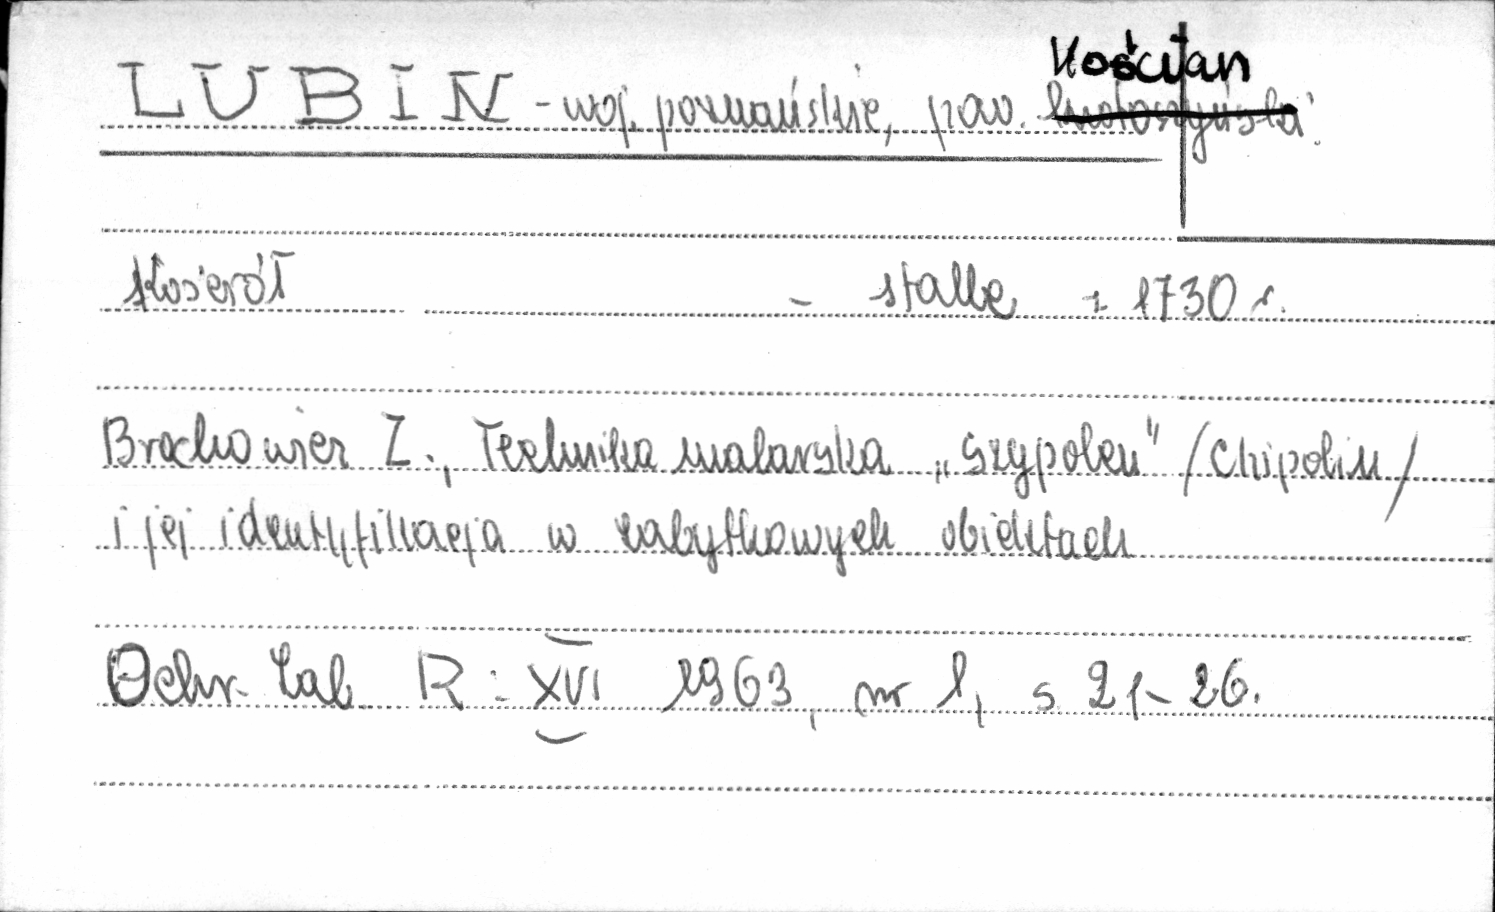 LUBIN - woj. poznańskie, pow. krotoszyński.
Kościan
Kościół - stalle z 1730 r.
Brochowicz Z., Technika malarska „Szypolen" /Chipolin/
i jej identyfikacja w zabytkowych obiektach
Ochr. Zab. R: XVI 1963, nr 1, s 21-26.